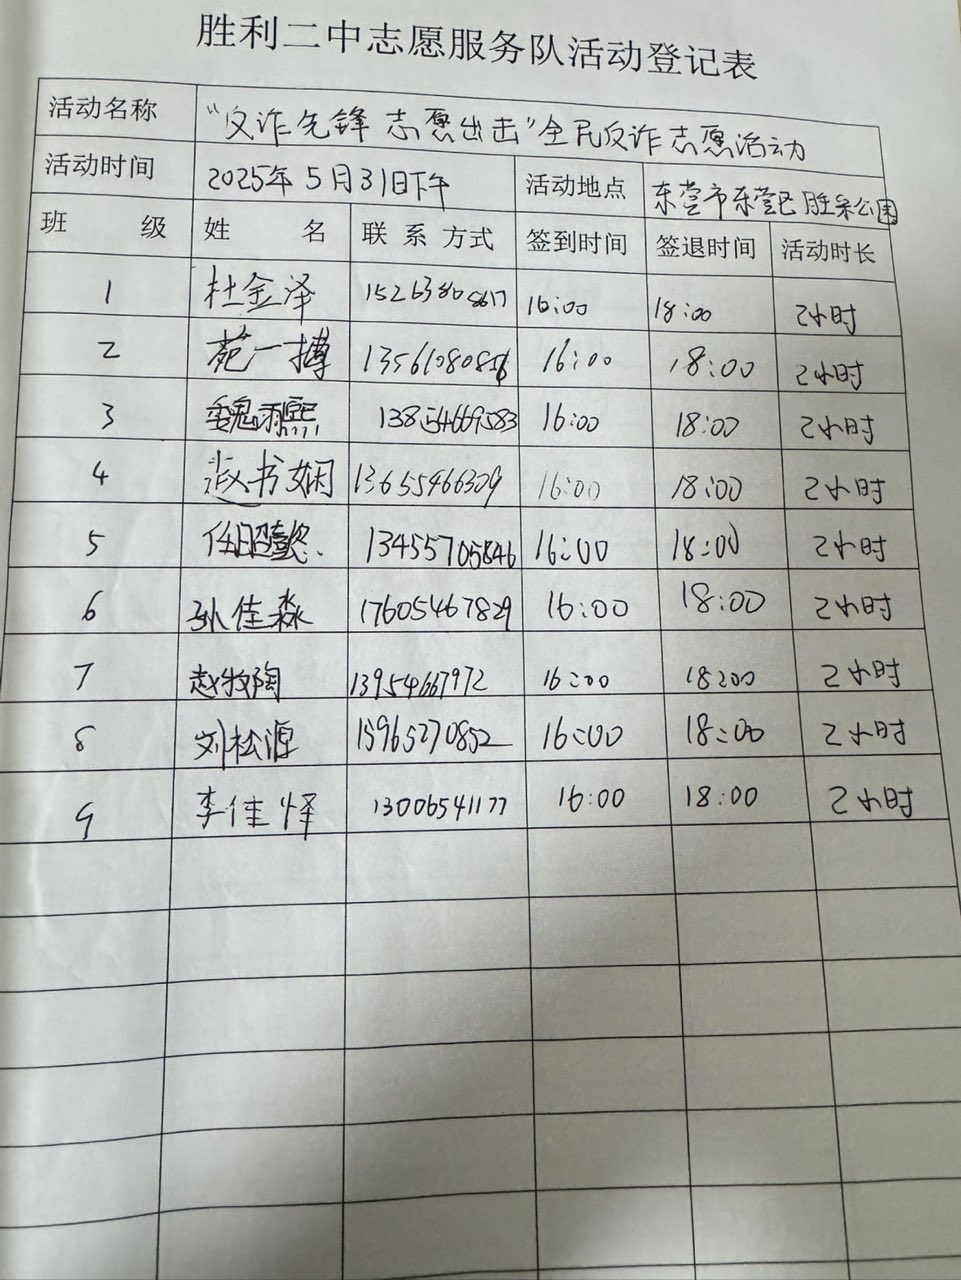 胜利二中志愿服务队活动登记表
活动名称 “反诈先锋 志愿出击”全民反诈志愿活动
活动时间 2025年5月31日下午 活动地点 东营市东营区胜采公园
班 级 姓 名 联 系 方式 签到时间 签退时间 活动时长
1 杜金泽 16:00 18:00 2小时
2 苑一搏 16:00 18:00 2小时
3 魏雨熙 13854669583 16:00 18:00 2小时
4 赵书娴 13655466309 16:00 18:00 2小时
5 13455705846 16:00 18:00 2小时
6 孙佳淼 17605467829 16:00 18:00 2小时
7 赵牧陶 13954667972 16:00 18:00 2小时
8 刘松源 15965270852 16:00 18:00 2小时
9 李佳怿 13006541177 16:00 18:00 2小时